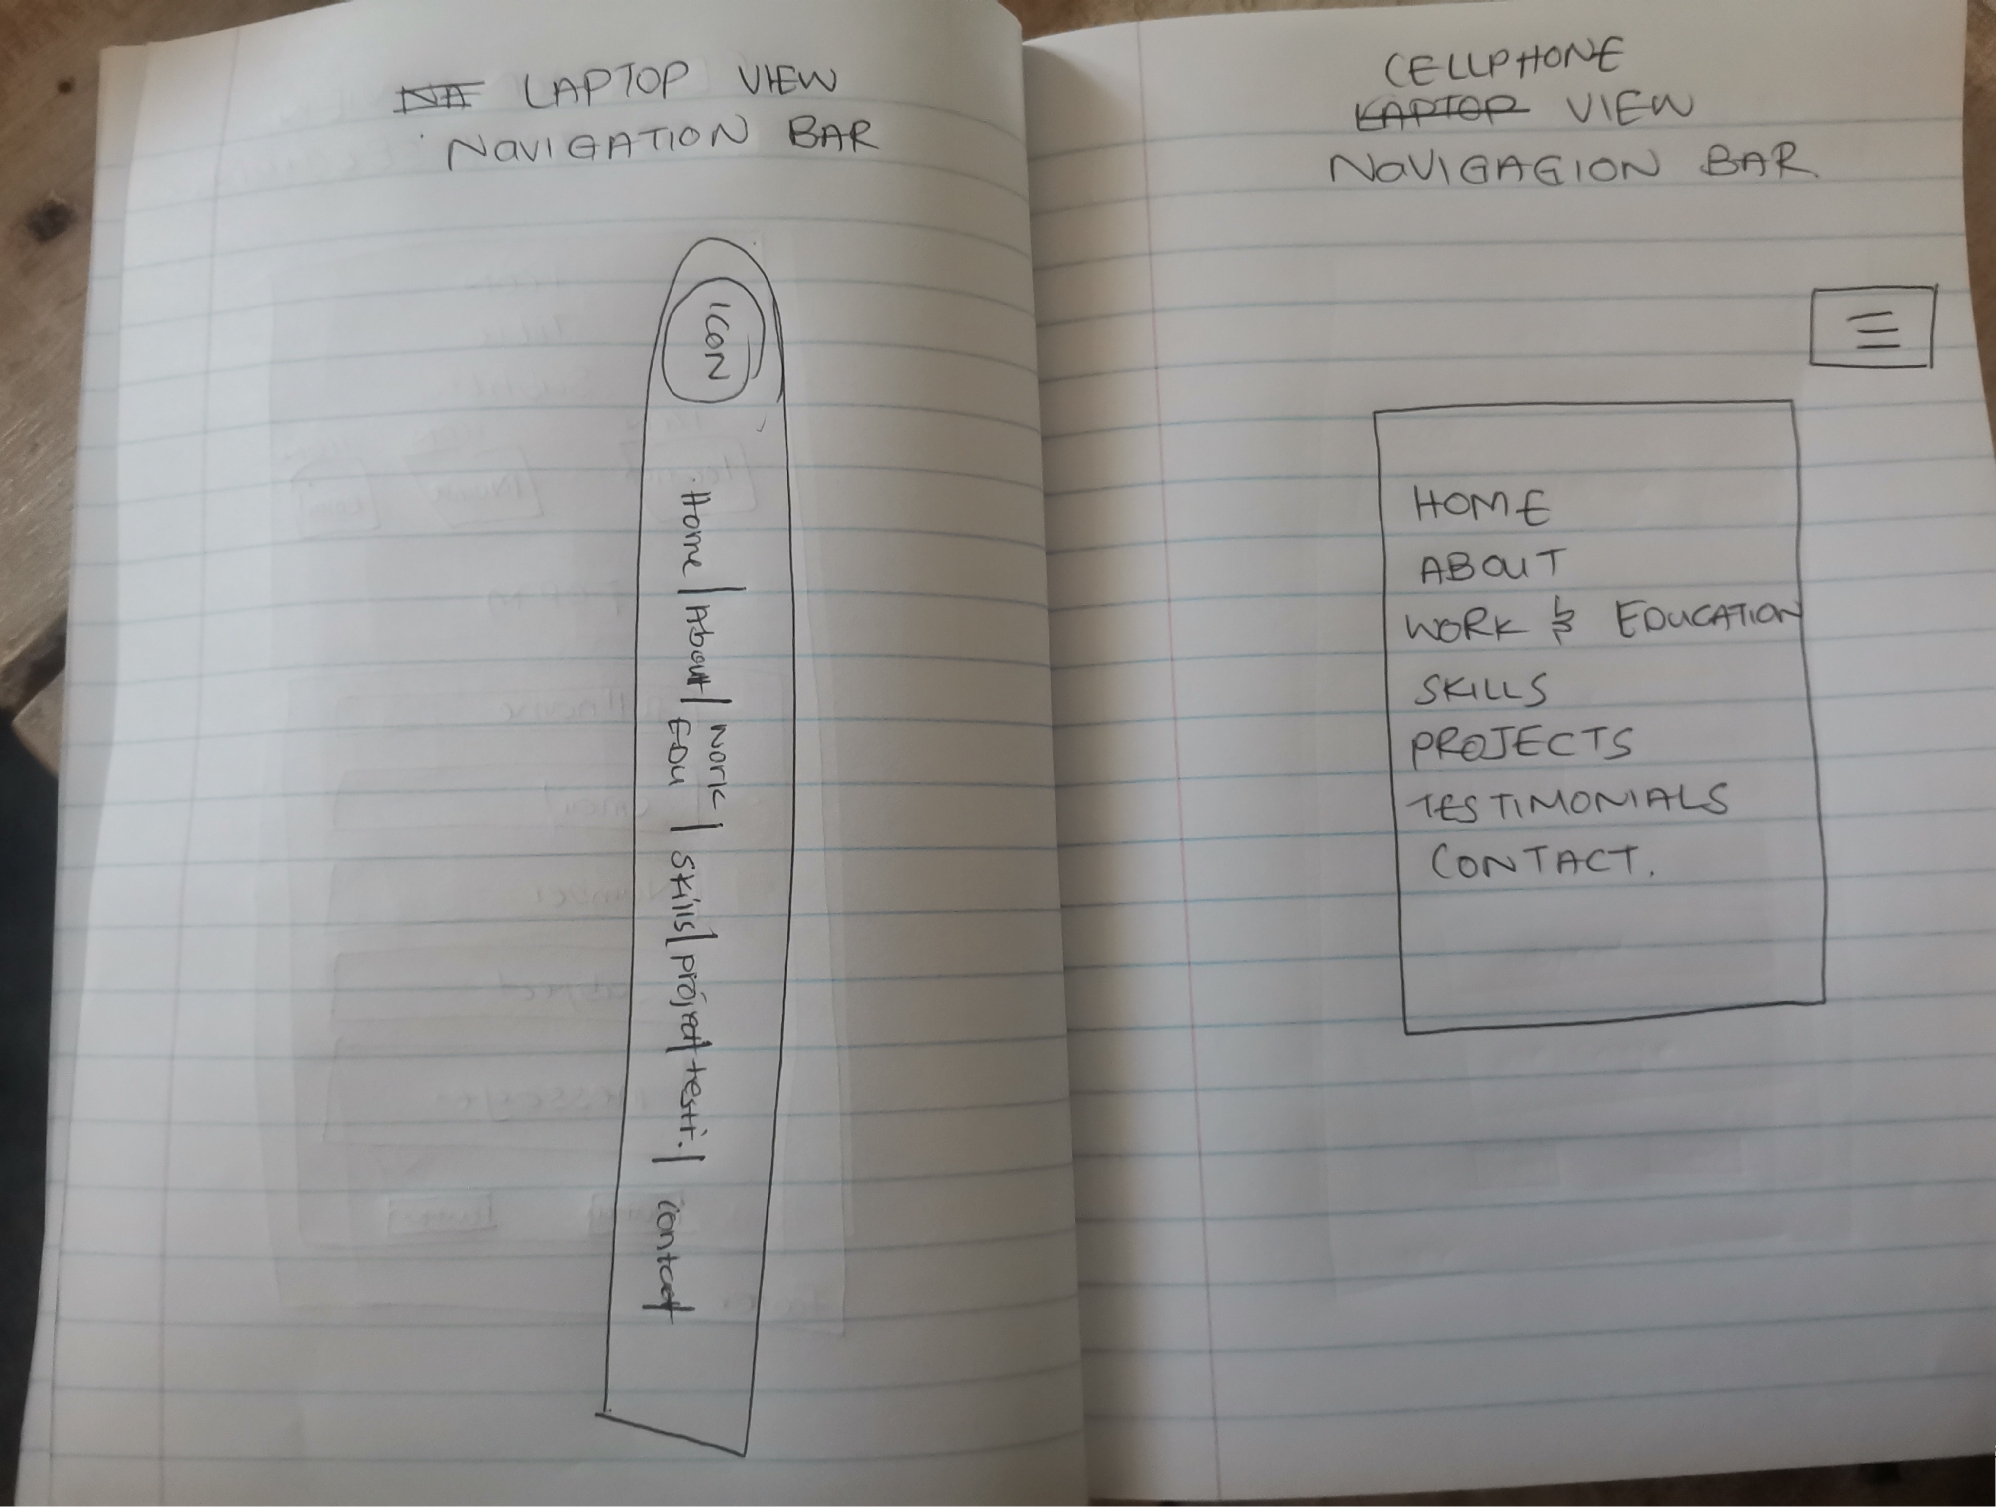 LAPTOP VIEW
NAVIGATION BAR
ICON
Home | About | Work Edu | Skills | project | testi. | contact
CELLPHONE
LAPTOP VIEW
NAVIGAGION BAR
HOME
ABOUT
WORK & EDUCATION
SKILLS
PROJECTS
TESTIMONIALS
CONTACT.